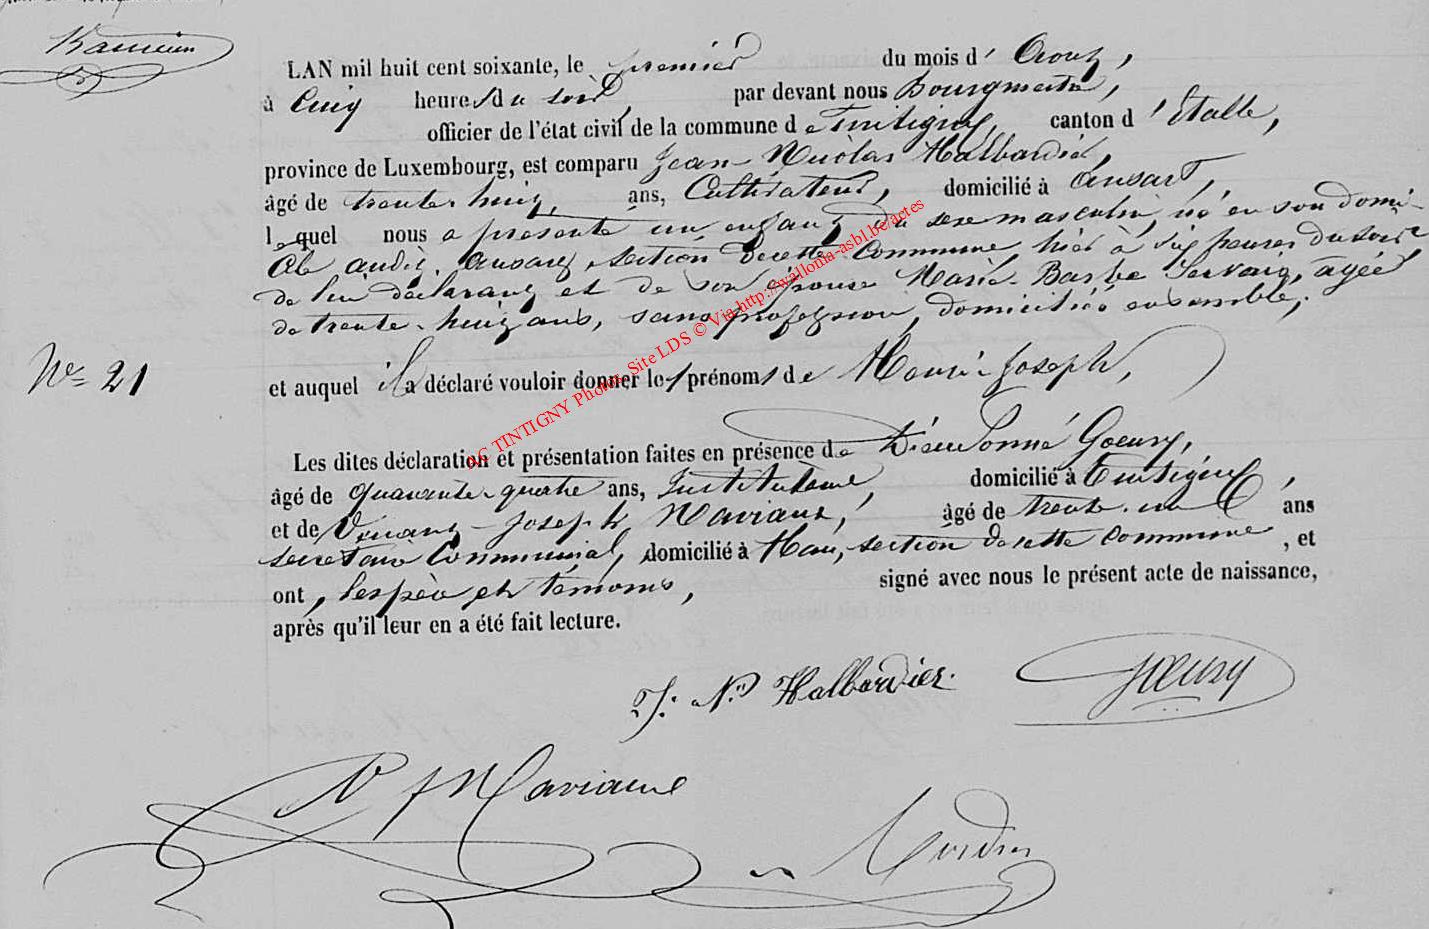 LAN mil huit cent soixante, le premier du mois d' Août,
à Cinq heures du soir, par devant nous Bourgmestre,
officier de l'état civil de la commune de Tintigny, canton d'Etalle,
province de Luxembourg, est comparu Jean-Nicolas Halbardier,
âgé de trente huit, ans, Cultivateur, domicilié à Ansart,
lequel nous a présenté un enfant du sexe masculin, né en son domi-
cile audit Ansart, section de cette commune, hier à six heures du soir,
de lui déclarant et de son épouse Marie-Barbe Servais, agée
de trente-huit ans, sans profession, domiciliés ensemble,
N° 21
et auquel il a déclaré vouloir donner les prénoms de Henri-Joseph,
Les dites déclaration et présentation faites en présence de Dieudonné Goeury,
âgé de quarante-quatre ans, Instituteur, domicilié à Tintigny,
et de Vinant-Joseph Maviaux, âgé de trente-un ans
secretaire Communal, domicilié à Han, section de cette commune, et
ont, les père et témoins, signé avec nous le présent acte de naissance,
après qu'il leur en a été fait lecture.
J. N. Halbardier. Goeury
V J Maviaux
AC TINTIGNY Photos Site LDS © Via http://wallonia-asbl.be/actes